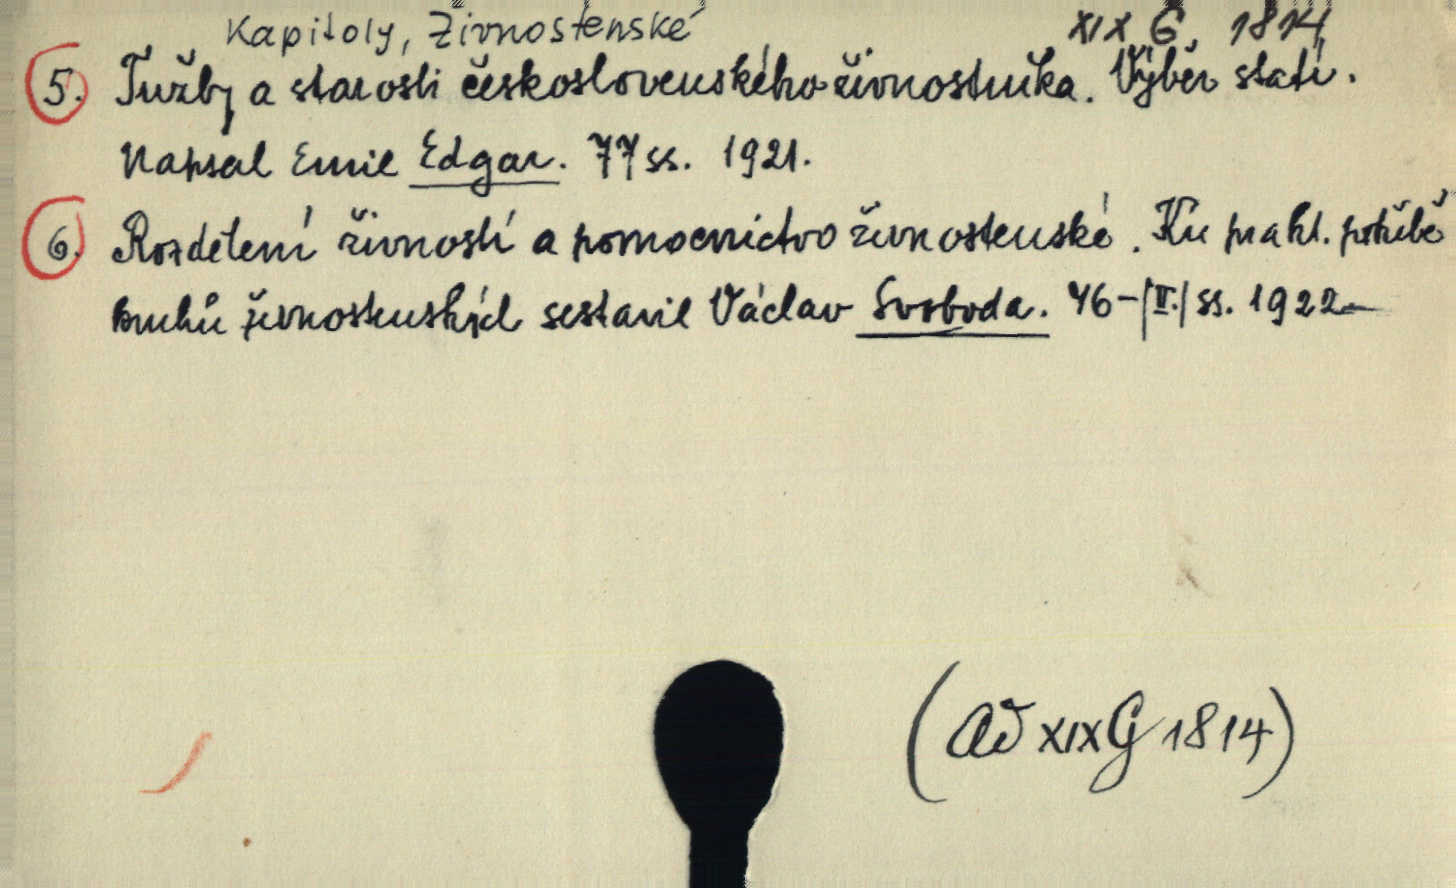 Kapitoly, Živnostenské XIX G. 1814
5. Tužby a starosti československého živnostníka. Výběr statí.
Napsal Emil Edgar. 77 ss. 1921.
6. Rozdělení živností a pomocnictvo živnostenské. Ku prakt. potřebě
kruhů živnostenských sestavil Václav Svoboda. 46-|II.| ss. 1922
(Ad XIX G 1814)